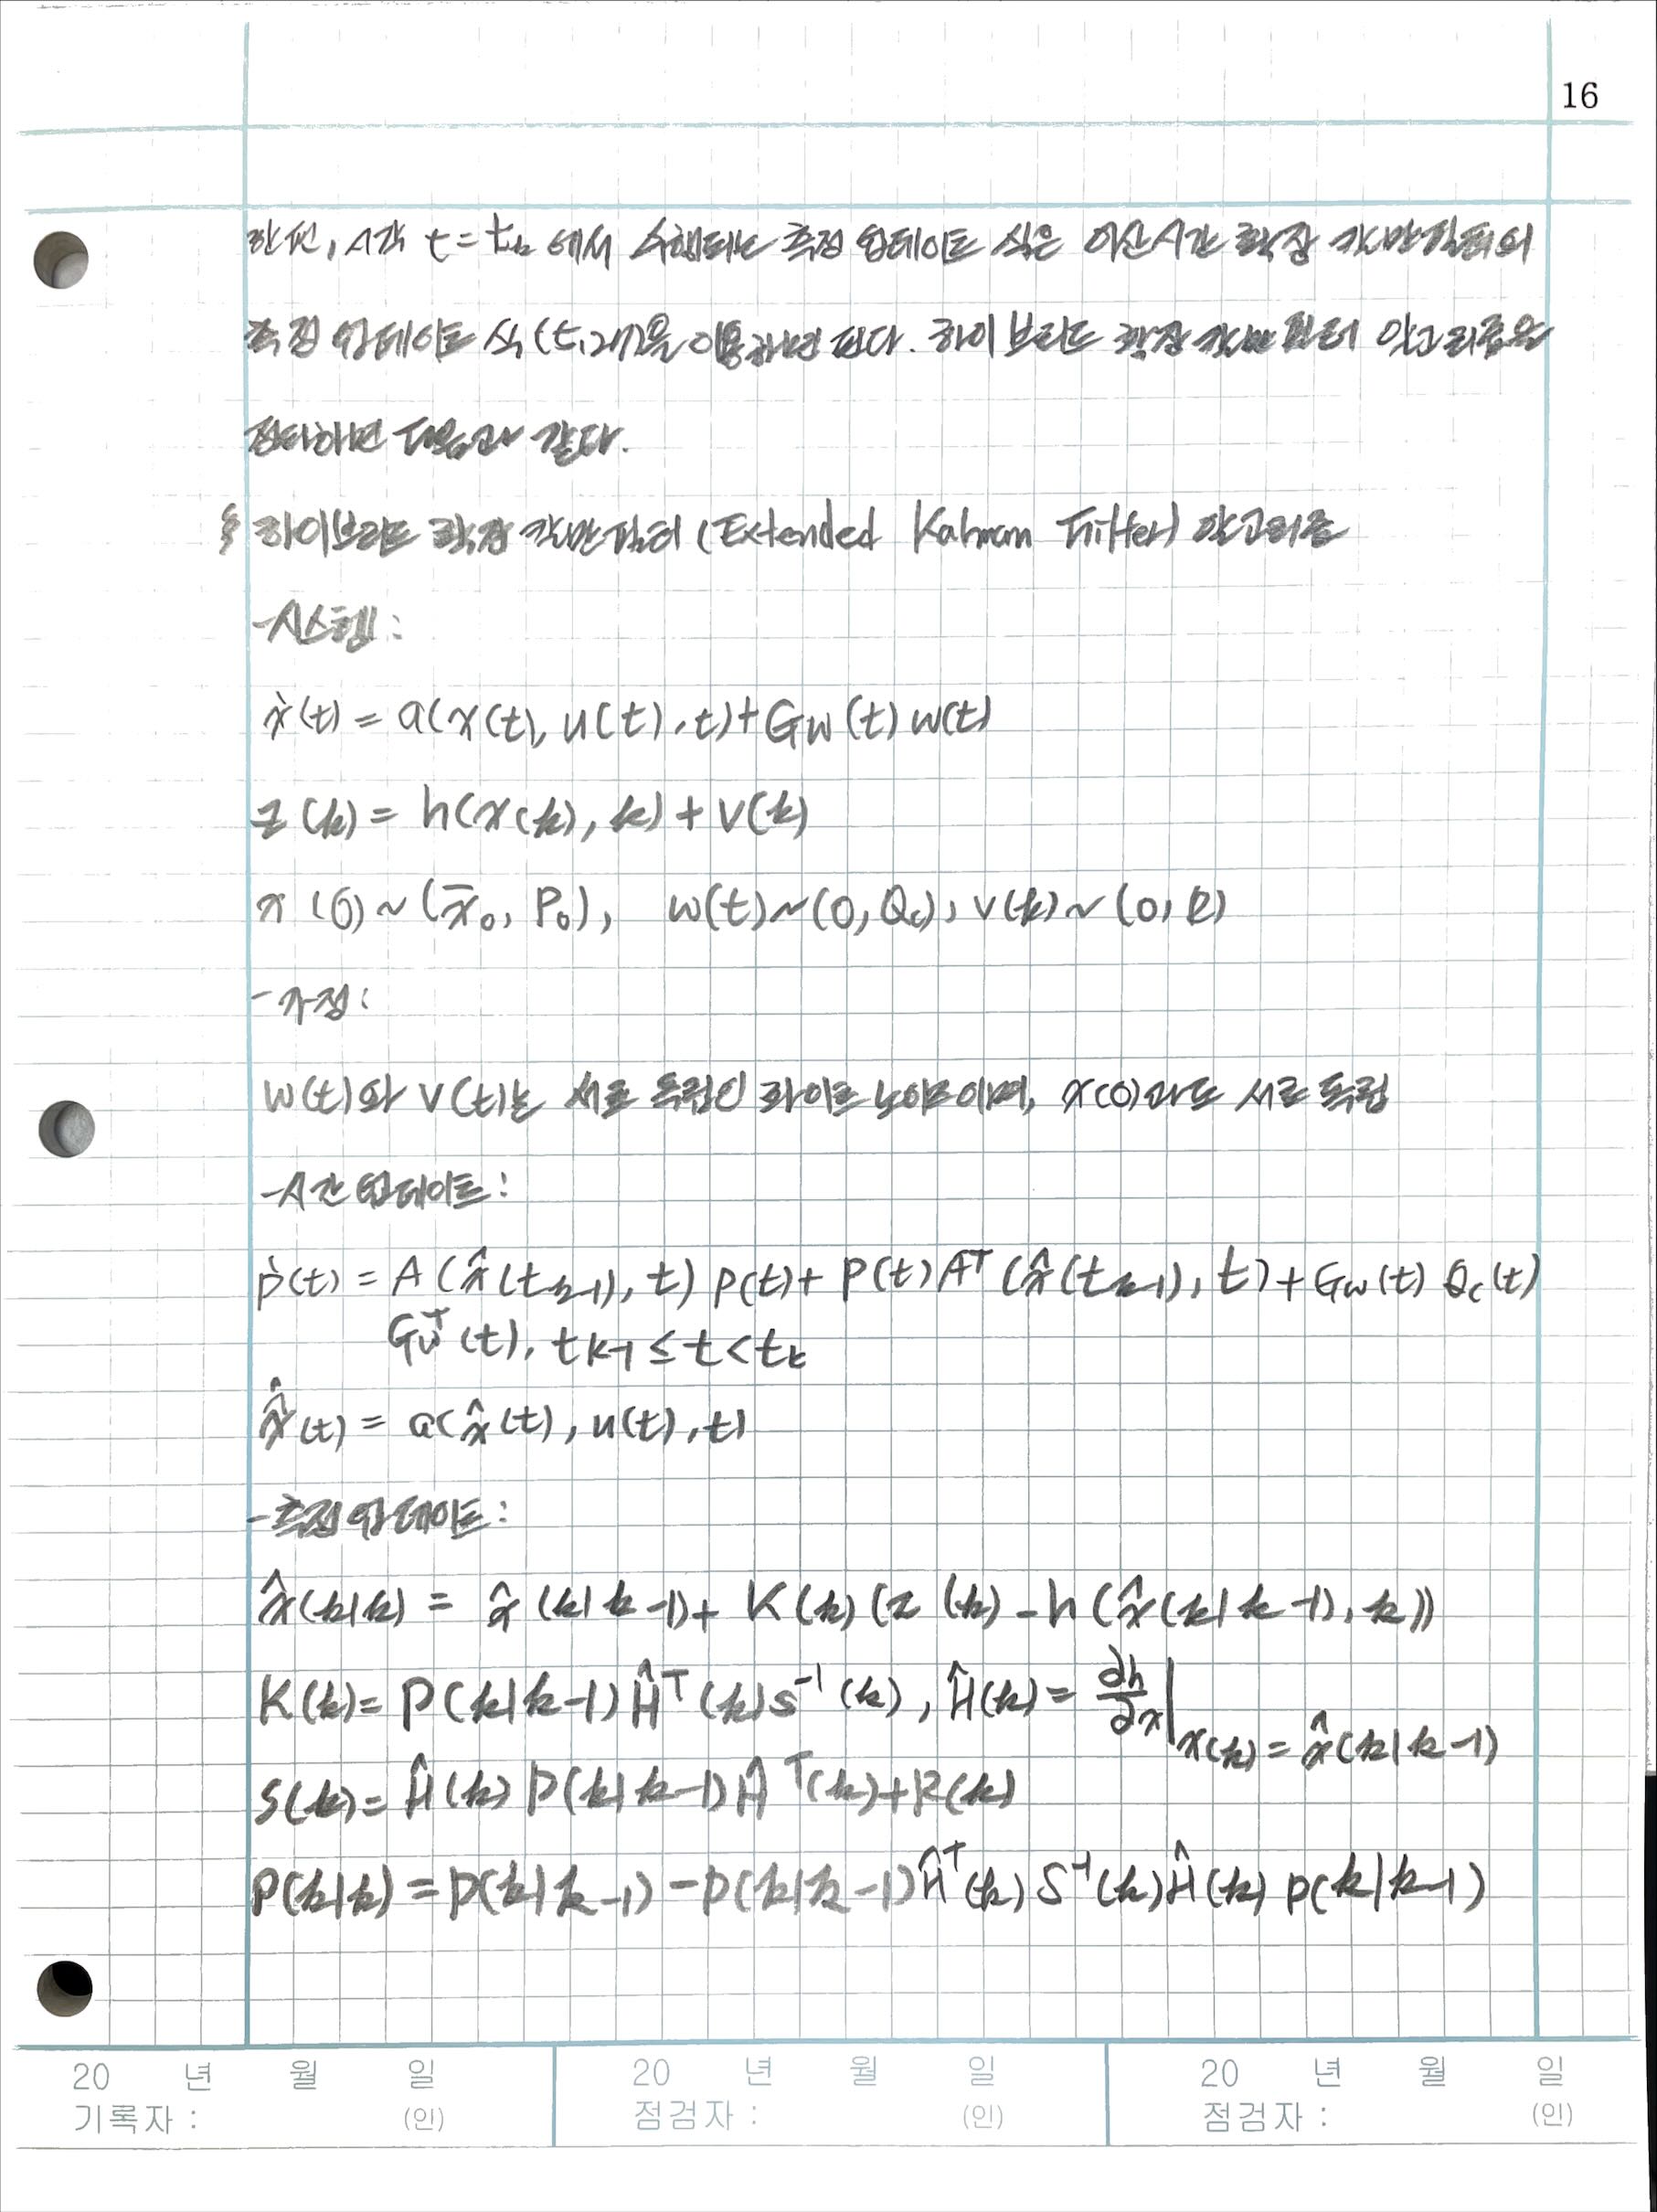 16
한편, 시간 t = tₖ 에서 수행되는 측정 업데이트 식은 이산시간 확장 칼만필터의
측정 업데이트 식 을 이용하면 된다. 하이브리드 확장 칼만 필터 알고리즘을
정리하면 다음과 같다.
하이브리드 확장 칼만필터 (Extended Kalman Filter) 알고리즘
-시스템:
ẋ(t) = a(x(t), u(t), t) + G_w(t) w(t)
z(k) = h(x(k), k) + v(k)
x(0) ~ (x̄₀, P₀), w(t) ~ (0, Q_c), v(k) ~ (0, R)
-가정:
w(t)와 v(t)는 서로 독립인 화이트 노이즈이며, x(0)과도 서로 독립
-시간 업데이트:
Ṗ(t) = A(x̂(t_{k-1}), t) P(t) + P(t) Aᵀ(x̂(t_{k-1}), t) + G_w(t) Q_c(t)
G_wᵀ(t), t_{k-1} ≤ t < t_k
x̂̇(t) = a(x̂(t), u(t), t)
-측정 업데이트:
x̂(k|k) = x̂(k|k-1) + K(k)(z(k) - h(x̂(k|k-1), k))
K(k) = P(k|k-1) Ĥᵀ(k) S⁻¹(k), Ĥ(k) = ∂h/∂x |x(k) = x̂(k|k-1)
S(k) = Ĥ(k) P(k|k-1) Ĥᵀ(k) + R(k)
P(k|k) = P(k|k-1) - P(k|k-1) Ĥᵀ(k) S⁻¹(k) Ĥ(k) P(k|k-1)
20 년 월 일 20 년 월 일 20 년 월 일
기록자 : (인) 점검자 : (인) 점검자 : (인)